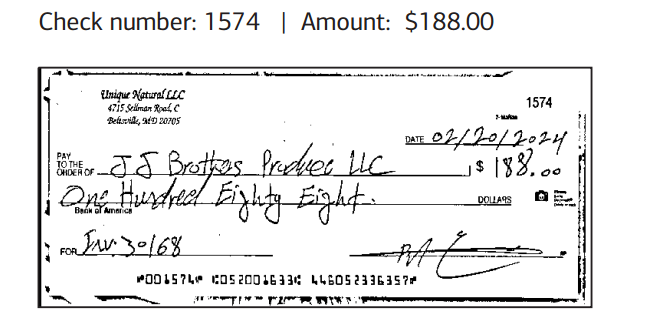 Check number: 1574 | Amount: $188.00
Unique Natural LLC
4715 Sellman Road, C
Beltsville, MD 20705
1574
DATE 02/20/2024
PAY TO THE ORDER OF JJ Brothers Produce LLC $ 188.00
One Hundred Eighty Eight. DOLLARS
Bank of America
FOR Inv. 30168
⑈001574⑈ ⑆052001633⑆ 446052336357⑈